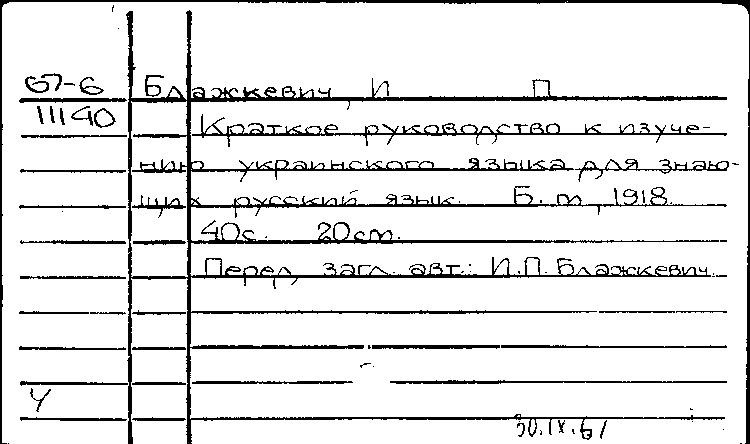 67-6 Блажкевич, И П
11140 Краткое руководство к изуче-
нию украинского языка для знаю-
щих русский язык. Б. м., 1918
40с. 20cm.
Перед загл. авт.: И.П. Блажкевич
У
30.IX.61